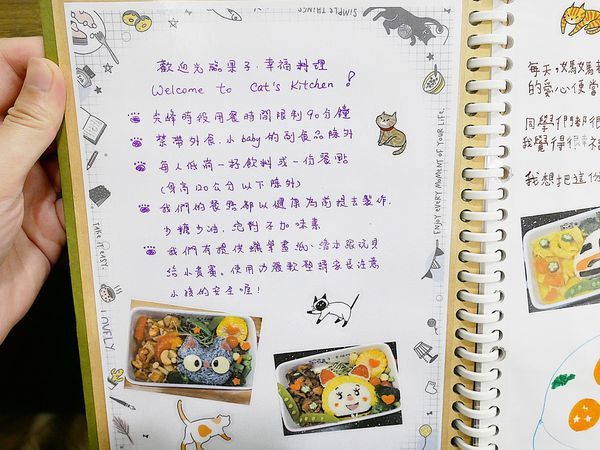 SIMPLE THINGS
歡迎光臨果子.幸福料理
Welcome to Cat's Kitchen!
尖峰時段用餐時間限制90分鐘
禁帶外食.小baby的副食品除外
每人低消一杯飲料或一份餐點
(身高120公分以下除外)
我們的餐點都以健康為前提去製作.
少糖少油.絕對不加味素
我們有提供蠟筆畫紙、
給小貴賓.使用功能軟墊請家長注意
小孩的安全喔!
ENJOY EVERY MOMENT OF YOUR LIFE.
TAKE IT EASY.
LOVELY
每天,媽媽
的愛心便當
同學們都很
我覺得很
我想把這份